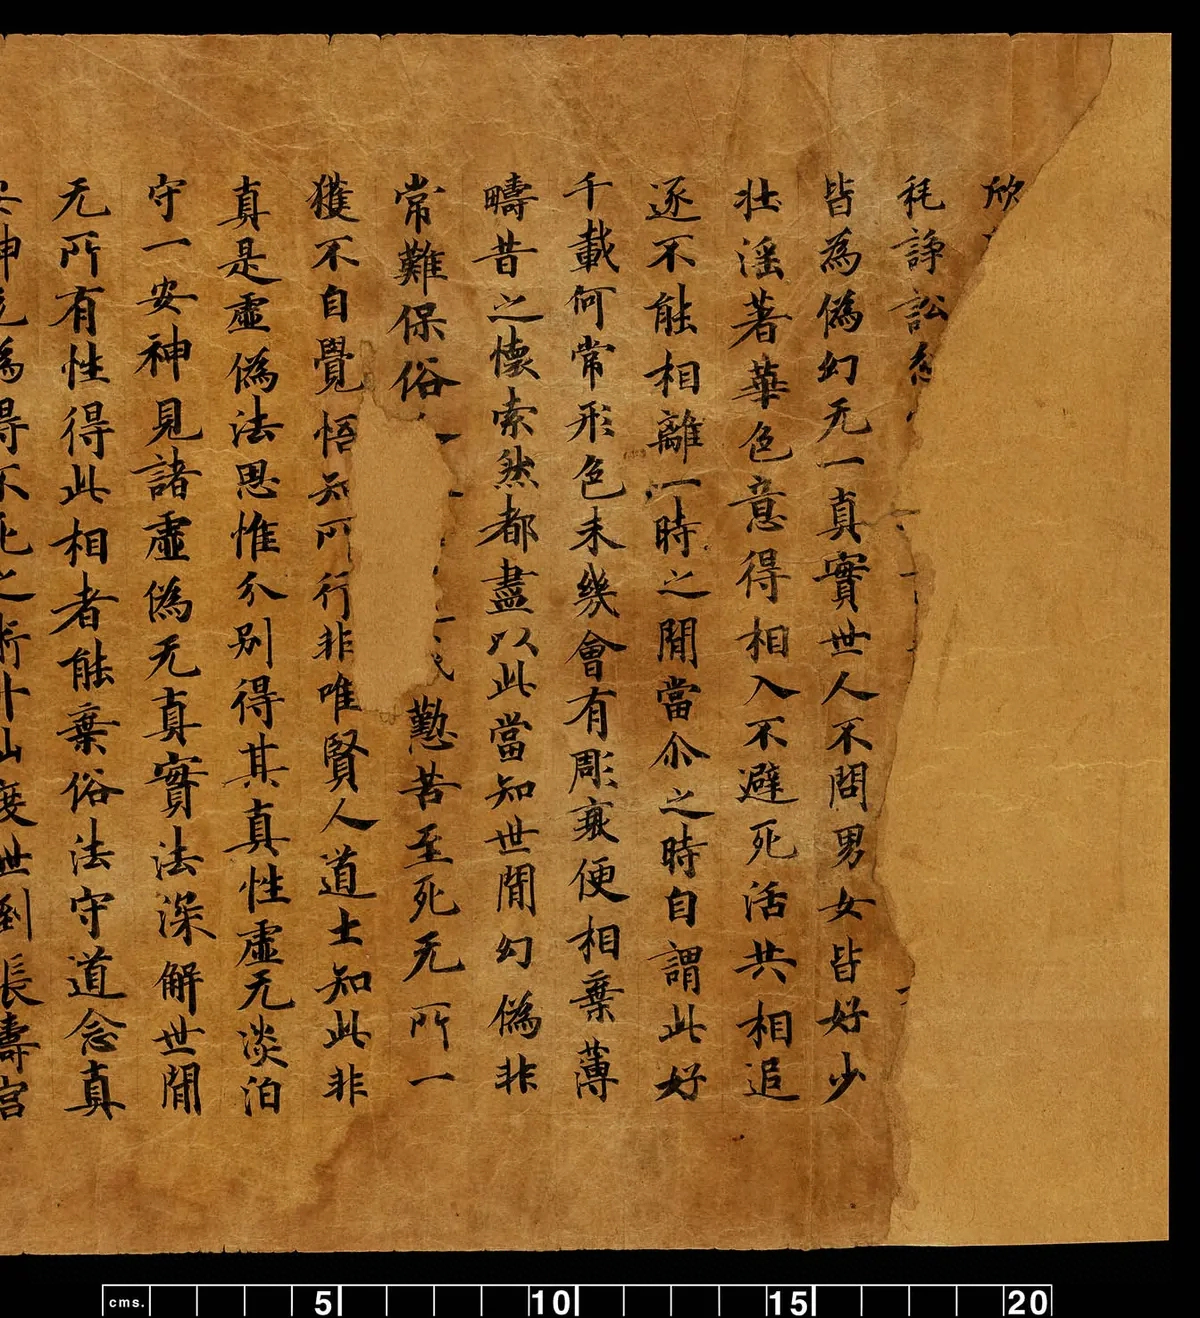 欣
秏諍訟
皆為偽幻无一真實世人不問男女皆好少
壯滛著華色意得相入不避死活共相追
逐不能相離一時之閒當尒之時自謂此好
千載何常形色未幾會有彫衰便相棄薄
疇昔之懷索然都盡以此當知世閒幻偽非
常難保俗懃苦至死无所一
獲不自覺悟知所行非唯賢人道士知此非
真是虛偽法思惟分別得其真性虛无淡泊
守一安神見諸虛偽无真實法深解世閒
无所有性得此相者能棄俗法守道念真
神為得不死之術升仙度世到長壽宮
cms. 5 10 15 20